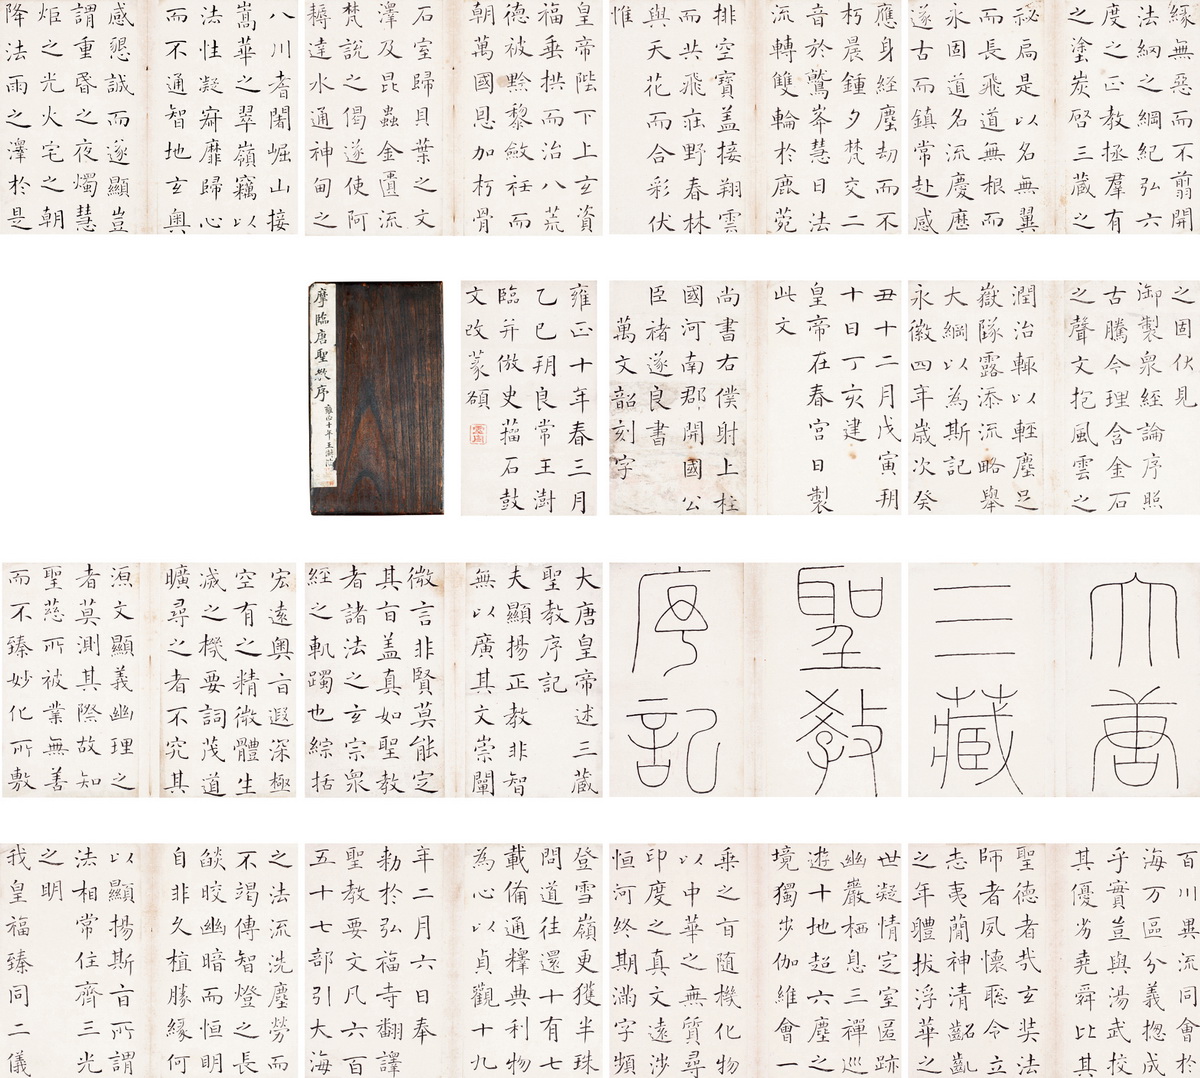 緣無惡而不剪開
法網之綱紀弘六
度之正教拯羣有
之塗炭啓三藏之
祕扃是以名無翼
而長飛道無根而
永固道名流慶歷
遂古而鎮常赴感
應身經塵劫而不
朽晨鍾夕梵交二
音於鷲峯慧日法
流轉雙輪於鹿菀
排空寶盖接翔雲
而共飛莊野春林
與天花而合彩伏
惟
皇帝陛下上玄資
福垂拱而治八荒
德被黔黎斂衽而
朝萬國恩加朽骨
石室歸貝葉之文
澤及昆蟲金匱流
梵說之偈遂使阿
耨達水通神甸之
八川耆闍崛山接
嵩華之翠嶺竊以
法性凝寂靡歸心
而不通智地玄奧
感懇誠而遂顯豈
謂重昏之夜燭慧
炬之光火宅之朝
降法雨之澤於是
之固伏見
御製衆經論序照
古騰今理含金石
之聲文抱風雲之
潤治輙以輕塵足
嶽墜露添流略舉
大綱以為斯記
永徽四年歲次癸
丑十二月戊寅朔
十日丁亥建
皇帝在春宮日製
此文
尚書右僕射上柱
國河南郡開國公
臣褚遂良書
萬文韶刻字
雍正十年春三月
乙巳朔良常王澍
臨并倣史籀石鼓
文改篆碩
摩臨唐聖教序
雍正十年王澍臨
大唐
三藏
聖教
序記
大唐皇帝述三藏
聖教序記
夫顯揚正教非智
無以廣其文崇闡
微言非賢莫能定
其旨盖真如聖教
者諸法之玄宗衆
經之軌躅也綜括
宏遠奧旨遐深極
空有之精微體生
滅之機要詞茂道
曠尋之者不究其
源文顯義幽理之
者莫測其際故知
聖慈所被業無善
而不臻妙化所敷
百川異流同會於
海万區分義揔成
乎實豈與湯武挍
其優劣堯舜比其
聖德者哉玄奘法
師者夙懷聡令立
志夷簡神清齠齓
之年體拔浮華之
世凝情定室匿跡
幽巖栖息三禪巡
遊十地超六塵之
境獨步伽維會一
乘之旨隨機化物
以中華之無質尋
印度之真文遠涉
恒河終期滿字頻
登雪嶺更獲半珠
問道往還十有七
載備通釋典利物
為心以貞觀十九
年二月六日奉
勑於弘福寺翻譯
聖教要文凡六百
五十七部引大海
之法流洗塵勞而
不竭傳智燈之長
燄皎幽暗而恒明
自非久植勝緣何
以顯揚斯旨所謂
法相常住齊三光
之明
我皇福臻同二儀